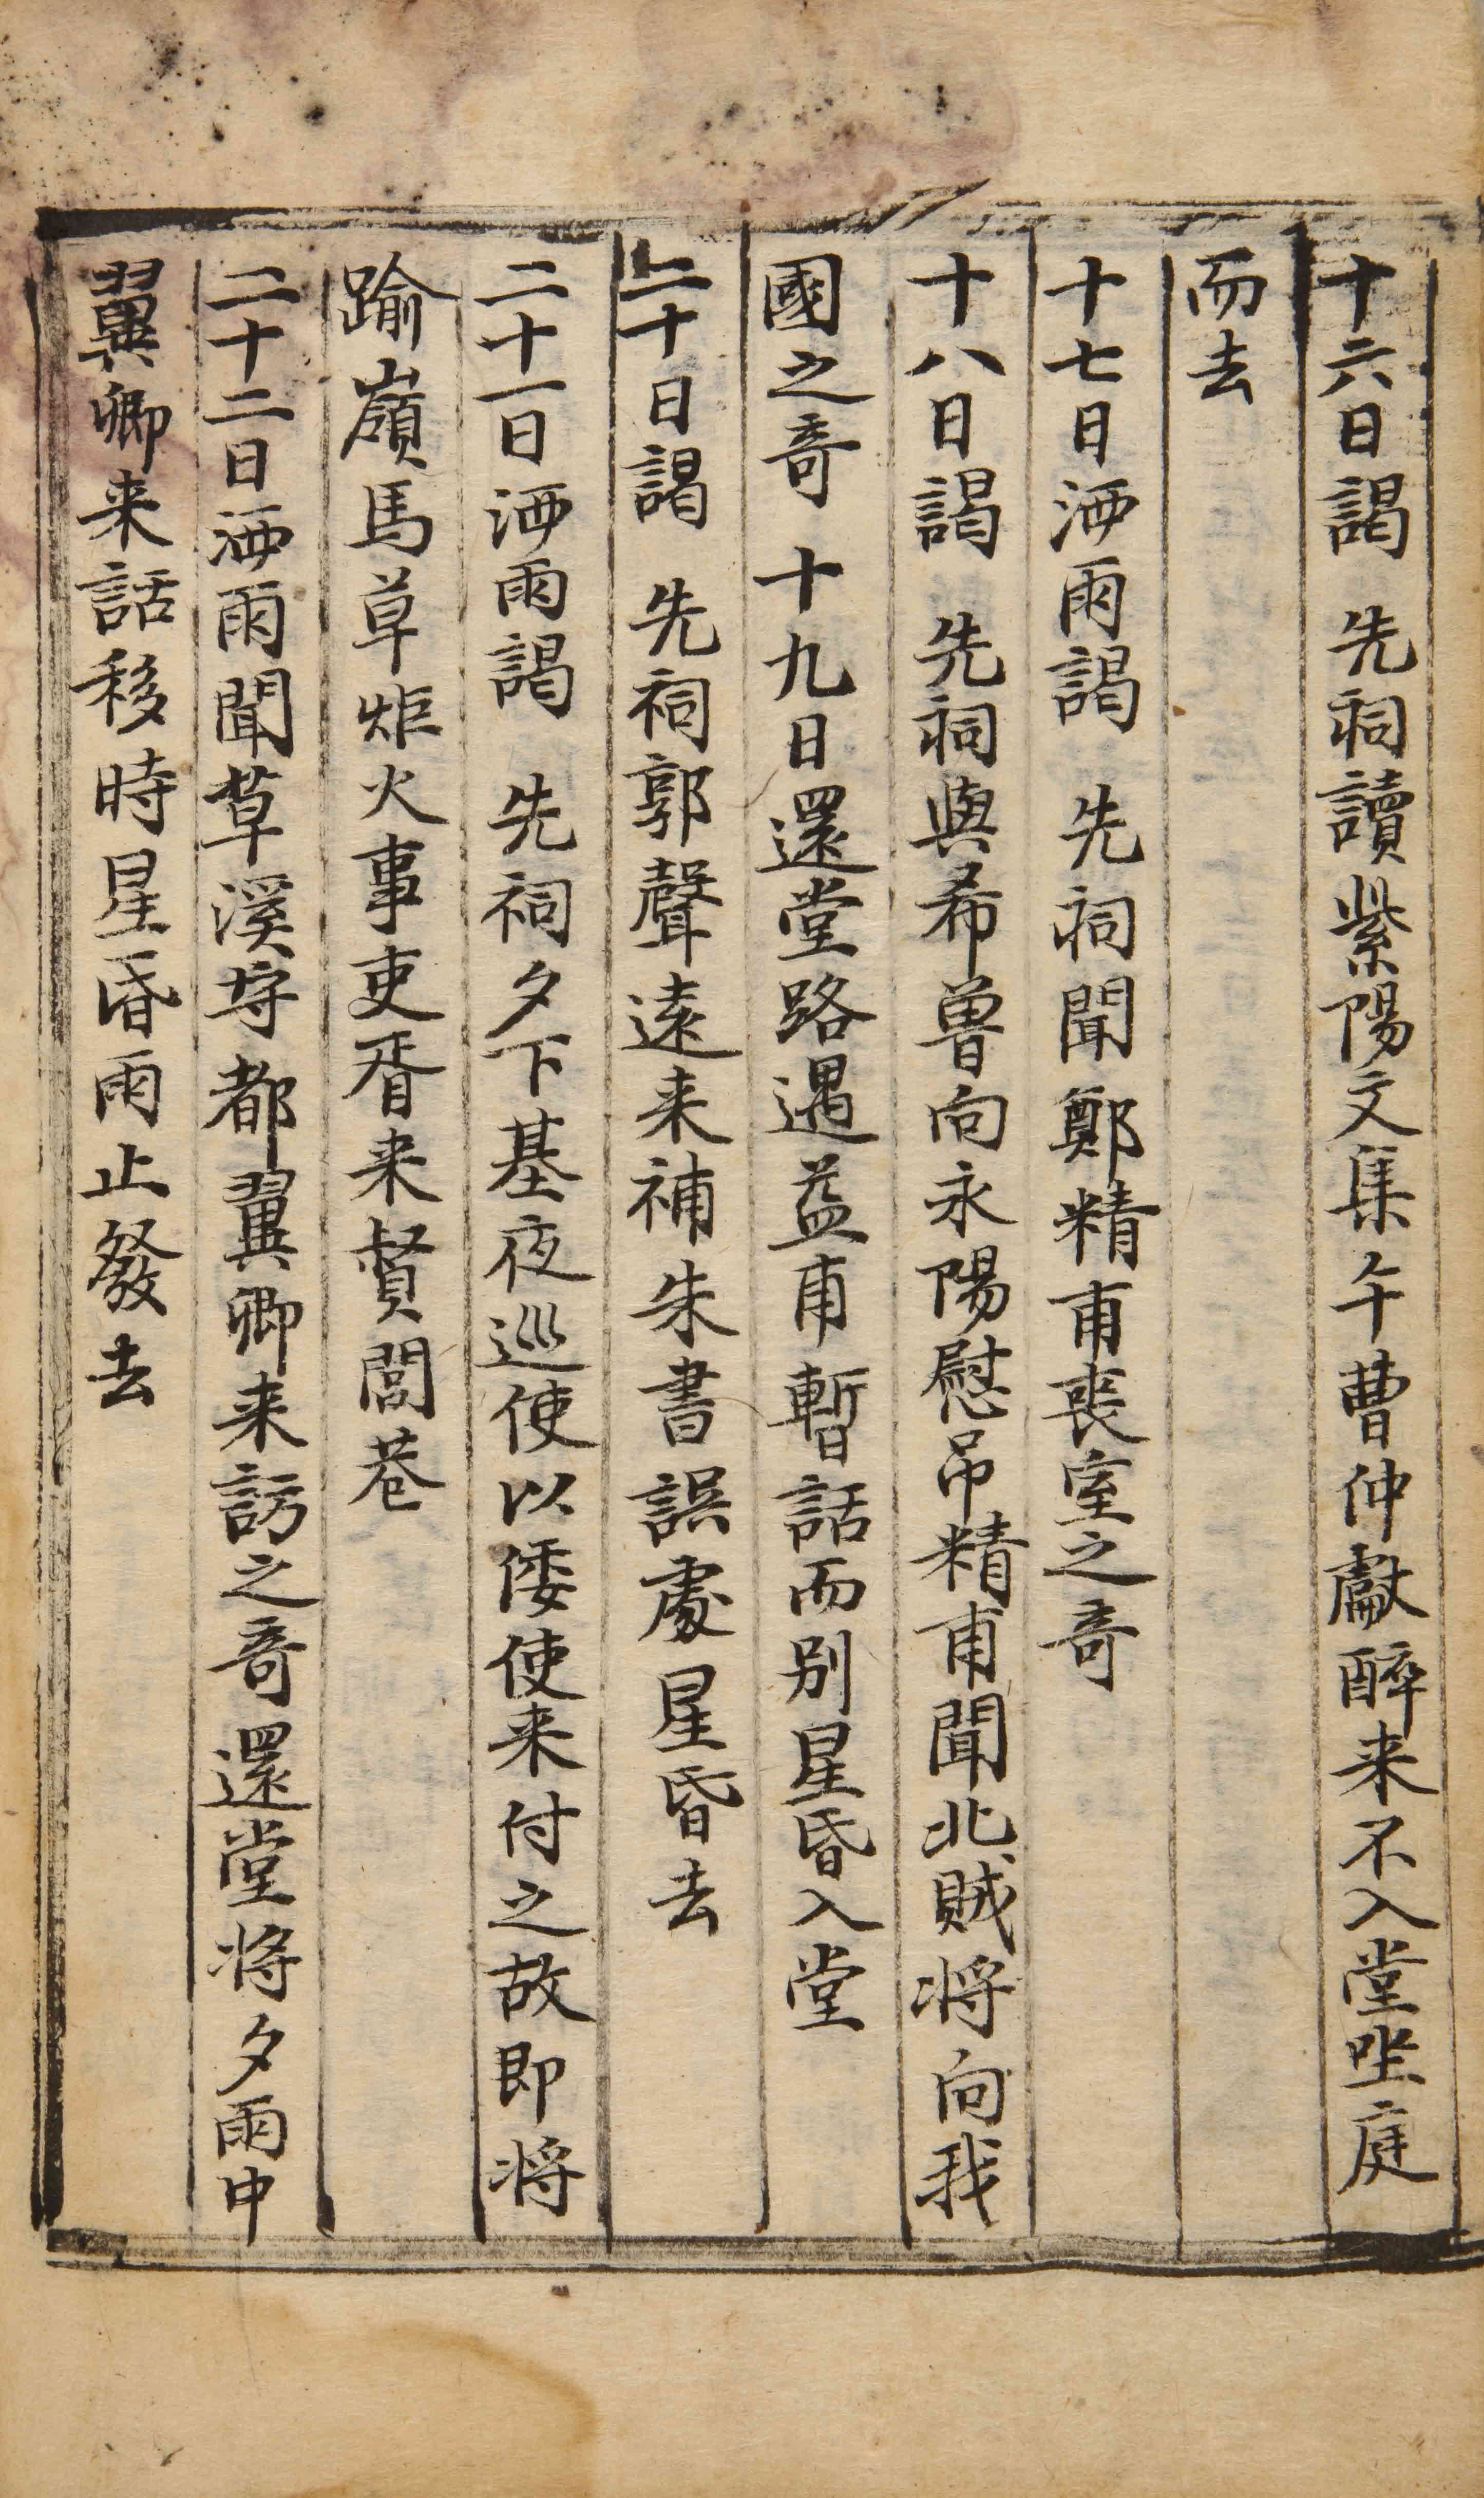 十六日謁 先祠讀紫陽文集午曹仲獻醉来不入堂坐庭
而去
十七日洒雨謁 先祠聞鄭精甫喪室之奇
十八日謁 先祠與希曽向永陽慰吊精甫聞北賊将向我
國之奇 十九日還堂路遇益甫暫話而別星昏入堂
二十日謁 先祠郭聲遠来補朱書誤處星昏去
二十一日洒雨謁 先祠夕下基夜巡使以倭使来付之故即将
踰嶺馬草炬火事吏胥来督閭巷
二十二日洒雨聞草溪守都翼卿来訪之奇還堂将夕雨中
翼卿来話移時星昏雨止發去